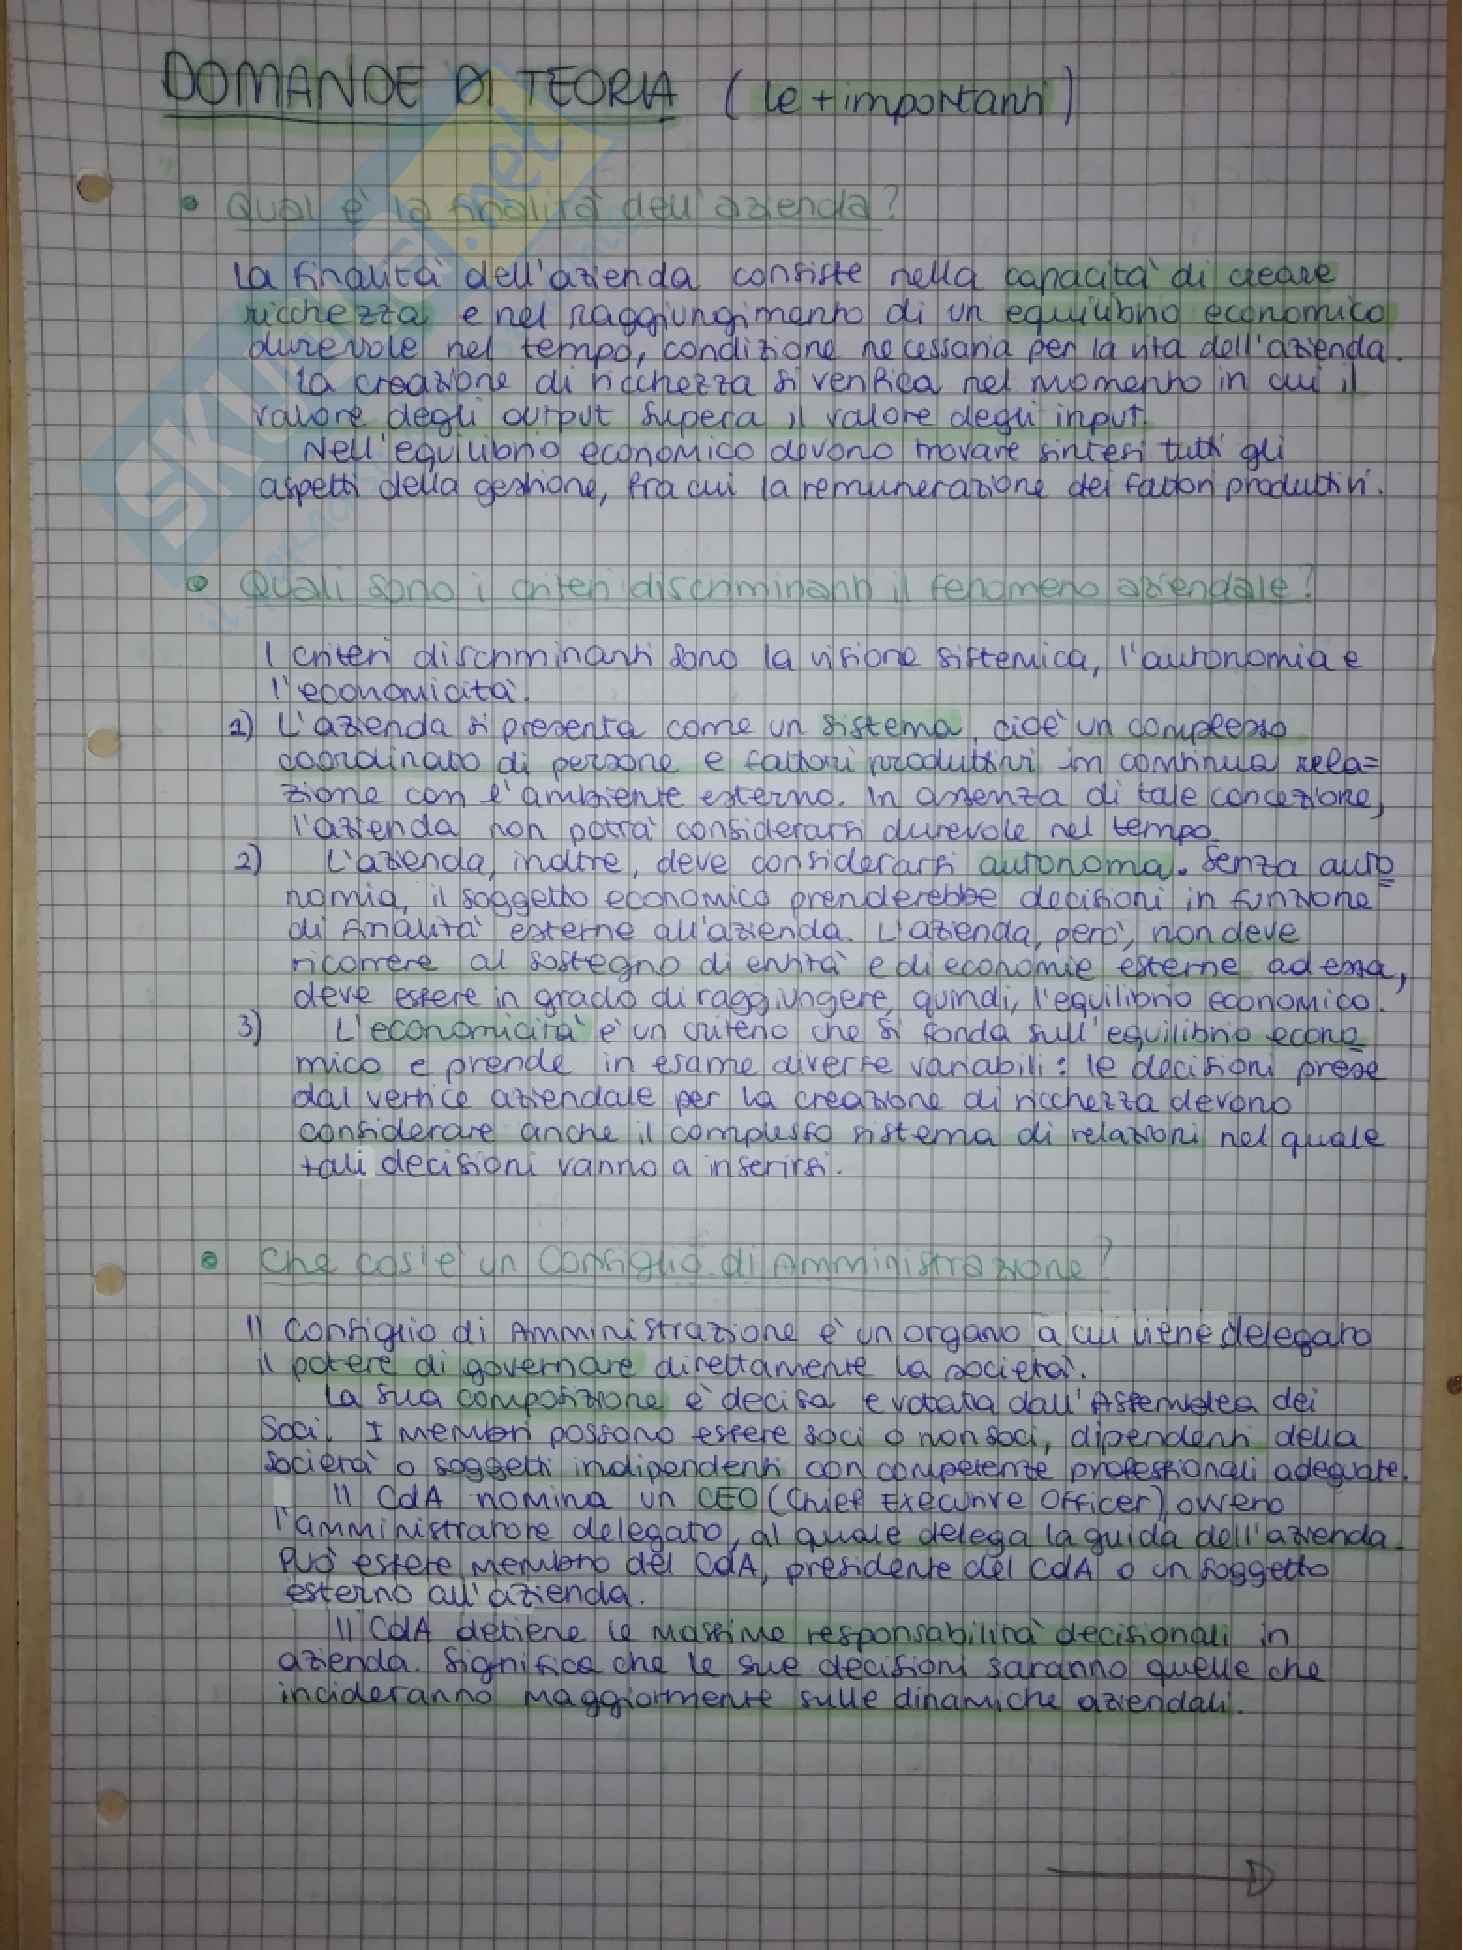 DOMANDE DI TEORIA (le + importanti)
• Qual è la finalità dell'azienda?
La finalità dell'azienda consiste nella capacità di creare
ricchezza e nel raggiungimento di un equilibrio economico
durevole nel tempo, condizione necessaria per la vita dell'azienda.
La creazione di ricchezza si verifica nel momento in cui il
valore degli output supera il valore degli input.
Nell'equilibrio economico devono trovare sintesi tutti gli
aspetti della gestione, fra cui la remunerazione dei fattori produttivi.
• Quali sono i criteri discriminanti il fenomeno aziendale?
I criteri discriminanti sono la visione sistemica, l'autonomia e
l'economicità.
1) L'azienda si presenta come un sistema, cioè un complesso
coordinato di persone e fattori produttivi in continua rela=
zione con l'ambiente esterno. In assenza di tale concezione,
l'azienda non potrà considerarsi durevole nel tempo.
2) L'azienda, inoltre, deve considerarsi autonoma. Senza auto
nomia, il soggetto economico prenderebbe decisioni in funzione
di finalità esterne all'azienda. L'azienda, però, non deve
ricorrere al sostegno di entità e di economie esterne ad essa,
deve essere in grado di raggiungere, quindi, l'equilibrio economico.
3) L'economicità è un criterio che si fonda sull'equilibrio econo
mico e prende in esame diverse variabili: le decisioni prese
dal vertice aziendale per la creazione di ricchezza devono
considerare anche il complesso sistema di relazioni nel quale
tali decisioni vanno a inserirsi.
• Che cos'è un Consiglio di Amministrazione?
Il Consiglio di Amministrazione è un organo a cui viene delegato
il potere di governare direttamente la società.
La sua composizione è decisa e votata dall'Assemblea dei
Soci. I membri possono essere soci o non soci, dipendenti della
società o soggetti indipendenti con competenze professionali adeguate.
Il CdA nomina un CEO (Chief Executive Officer), ovvero
l'amministratore delegato, al quale delega la guida dell'azienda.
Può essere membro del CdA, presidente del CdA o un soggetto
esterno all'azienda.
Il CdA detiene le massime responsabilità decisionali in
azienda. Significa che le sue decisioni saranno quelle che
incideranno maggiormente sulle dinamiche aziendali.
SKUOLA.net